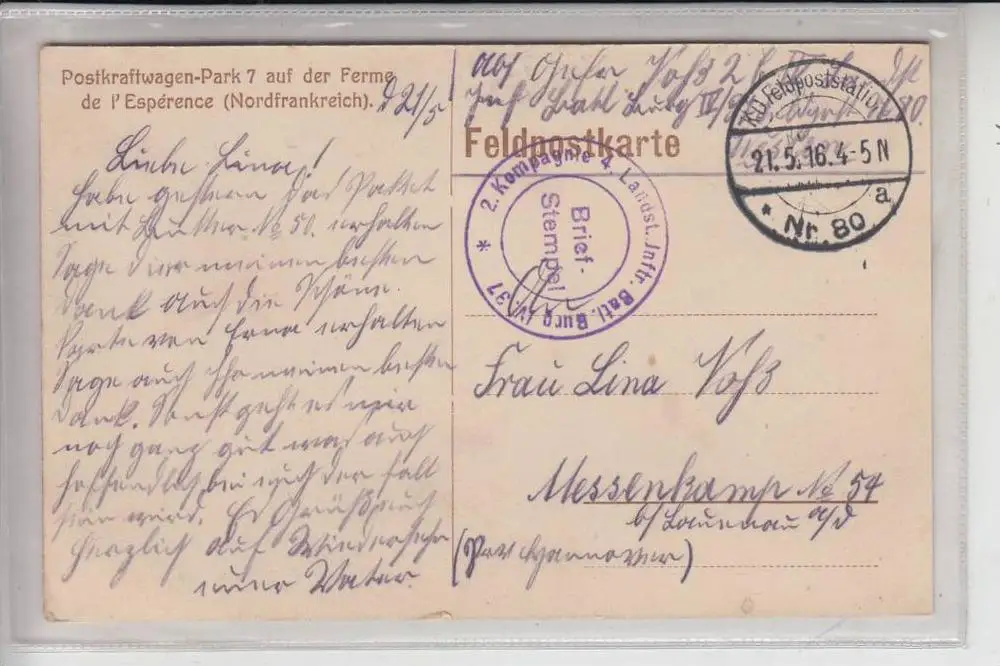 Postkraftwagen-Park 7 auf der Ferme
de l'Espérence (Nordfrankreich).
d 21/5
Liebe Lina!
habe gestern das Packet
mit Butter No 50. erhalten
Sage dier meinen besten
Dank auch die schöne
Karte von Erna erhalten
Sage auch Ihr meinen besten
Dank. Sonst geht es mir
noch ganz gut was auch
hoffendlich bei euch der fall
sein wird. Es Grüßt euch
herzlich auf Wiedersehn
euer Vater.
Abs Voß 2
Batl Burg No 80.
Feldpostkarte
K.D. Feldpoststation
21.5.16.4-5N
a
* Nr. 80
2. Kompagnie 4. Landst. Jnftr. Batl. Burg IV. 37 *
Brief-
Stempel
Frau Lina Voß
Messenkamp No 54
b/ Lauenau a/d
(Prov Hannover)